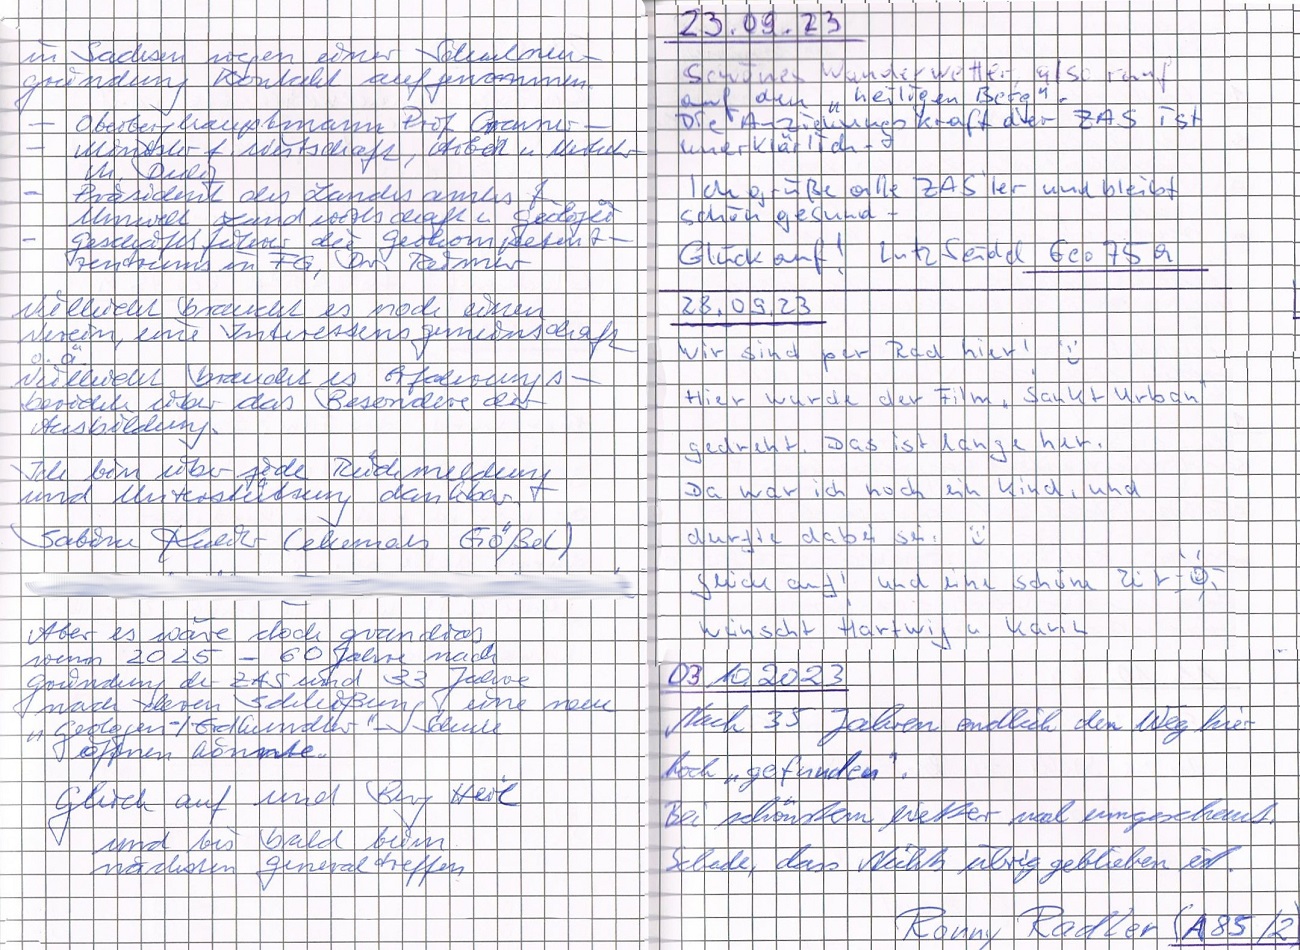 in Sachsen wegen einer
gründung Kontakt aufgenommen.
— Oberberghauptmann Prof
— Wirtschaft, Arbeit u. Verkehr
- Präsident des Landesamtes f.
Umwelt Landwirtschaft u Geologie
- Geschäftsführer des Geokompetenz-
zentrums in FG, Dr.
Vielleicht braucht es noch einen
Verein, eine Interessensgemeinschaft
o.ä.
Vielleicht braucht es Erfahrungs-
berichte über das Besondere der
Ausbildung.
Ich bin über jede Rückmeldung
und Unterstützung dankbar
Sabine (ehemals Gößel)
Aber es wäre doch grandios
wenn 2025 – 60 Jahre nach
Gründung der ZAS und 33 Jahre
nach deren Schließung eine neue
„Geologen-/Erdkundler"-Schule
öffnen könnte.
Glück auf und Berg Heil
und bis bald beim
nächsten Generaltreffen
23.09.23
Schönes Wanderwetter, also rauf
auf den „heiligen Berg".
Die Anziehungskraft der ZAS ist
unerklärlich-?
Ich grüße alle ZAS'ler und bleibt
schön gesund -
Glück auf! Lutz Seidel Geo 75a
28.09.23
Wir sind per Rad hier!
Hier wurde der Film „Sankt Urban"
gedreht. Das ist lange her.
Da war ich noch ein Kind, und
durfte dabei sei.
Glück auf! und eine schöne Zeit
wünscht Hartwig u Karin
03.10.2023
Nach 35 Jahren endlich den Weg hier
hoch „gefunden".
Bei schönstem Wetter mal umgeschaut.
Schade, dass Nichts übriggeblieben ist.
Ronny Radler (A85/2)